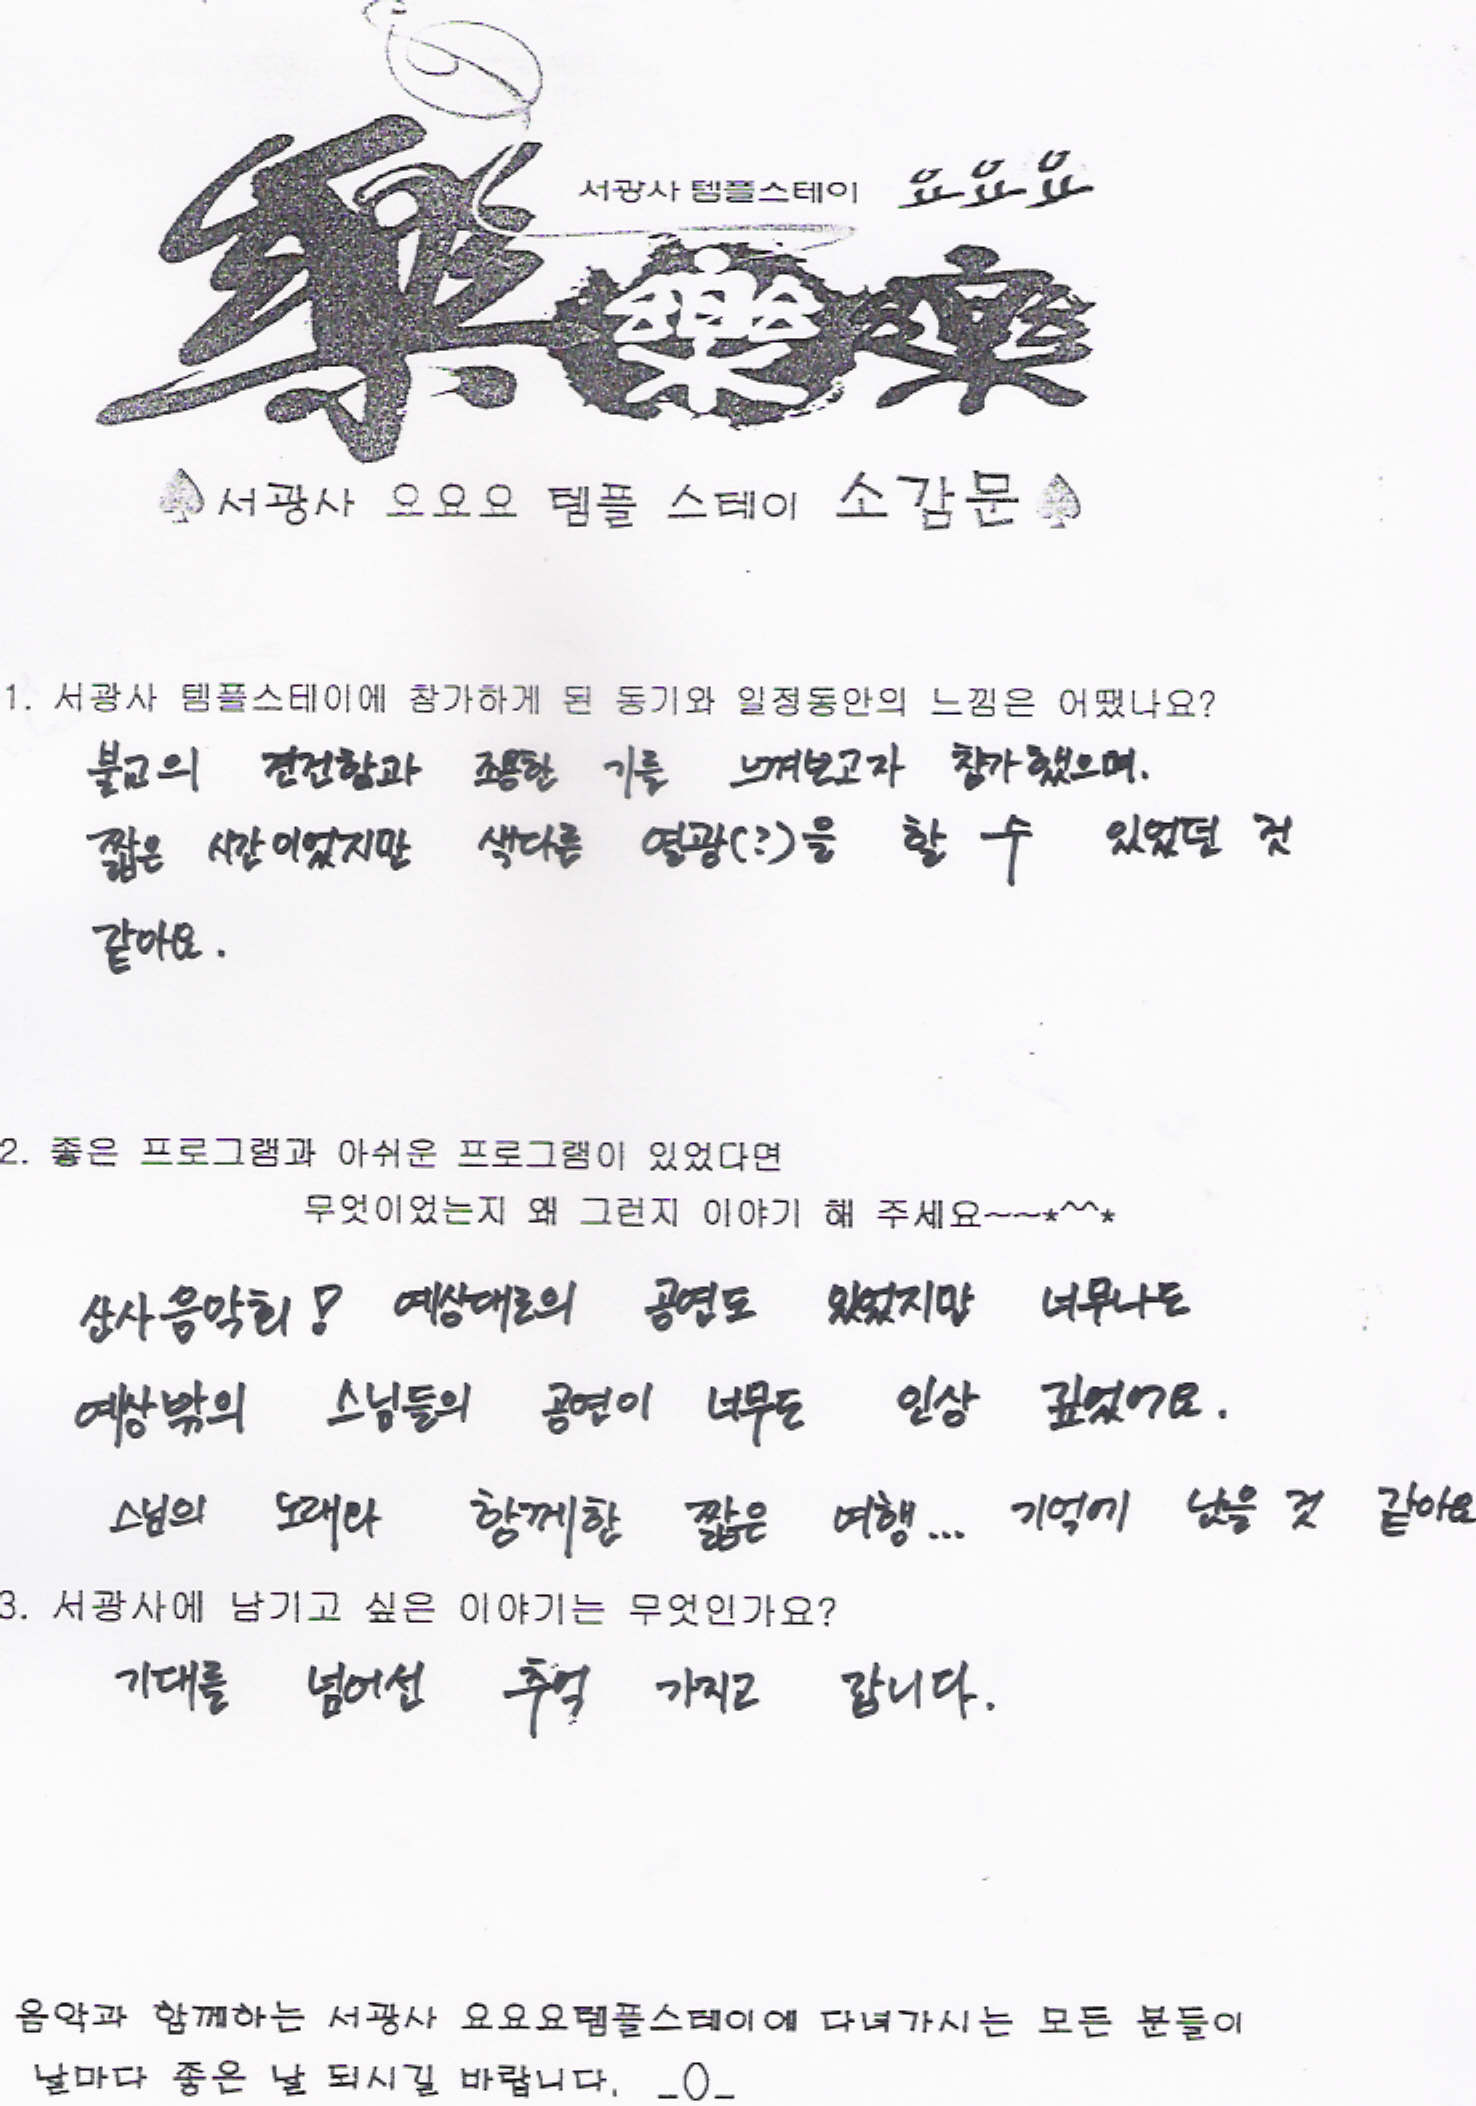 서광사 템플스테이 요요요
樂樂樂
서광사 요요요 템플 스테이 소감문
1. 서광사 템플스테이에 참가하게 된 동기와 일정동안의 느낌은 어땠나요?
불교의 건전함과 조용한 기를 느껴보고자 참가했으며.
짧은 시간이었지만 색다른 열광(?)을 할 수 있었던 것
같아요.
2. 좋은 프로그램과 아쉬운 프로그램이 있었다면
무엇이었는지 왜 그런지 이야기 해 주세요~~*^^*
산사음악회! 예상대로의 공연도 있었지만 너무나도
예상밖의 스님들의 공연이 너무도 인상 깊었어요.
스님의 노래와 함께한 짧은 여행... 기억에 남을 것 같아요
3. 서광사에 남기고 싶은 이야기는 무엇인가요?
기대를 넘어선 추억 가지고 갑니다.
음악과 함께하는 서광사 요요요템플스테이에 다녀가시는 모든 분들이
날마다 좋은 날 되시길 바랍니다. _()_